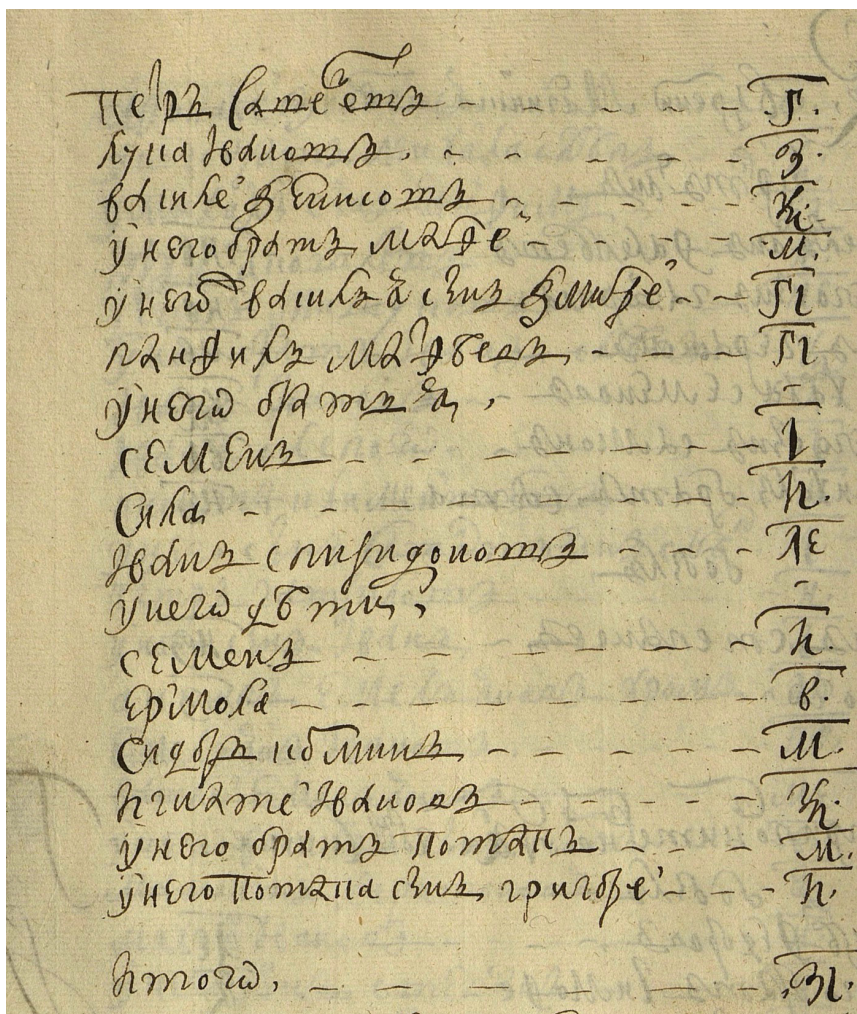 Петръ Савельевъ - - - - - Г.
Лука Ивановъ. - - - - - З.
Василей Денисовъ - - - - - КИ
У него братъ Матфей - - - - М.
У него Василья сынъ Дмитрей - - ГІ
Панфилъ Матфѣевъ - - - - ГІ
У негѡ братья,
Семенъ - - - - - - І
Сила - - - - - - И.
Иванъ Спиридоновъ - - - ЛЕ
У негѡ дѣти,
Семенъ - - - - - - И.
Ермола - - - - - - в.
Сидоръ - - - - - М.
Игнатей Ивановъ - - - - - КИ
У него братъ Потапъ - - - - М.
У него Потапа сынъ григорей - - - И.
Итогѡ. - - - - - ЗІ.